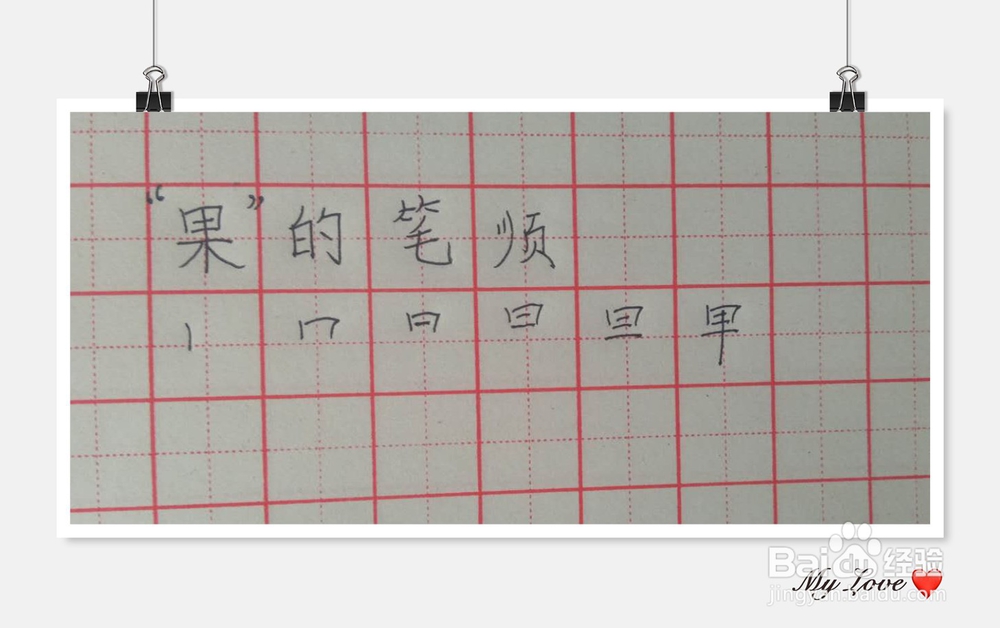 “果”的笔顺
丨 冂 日 旦 甲
Baidu经验
jingyan.baidu.com
My Love